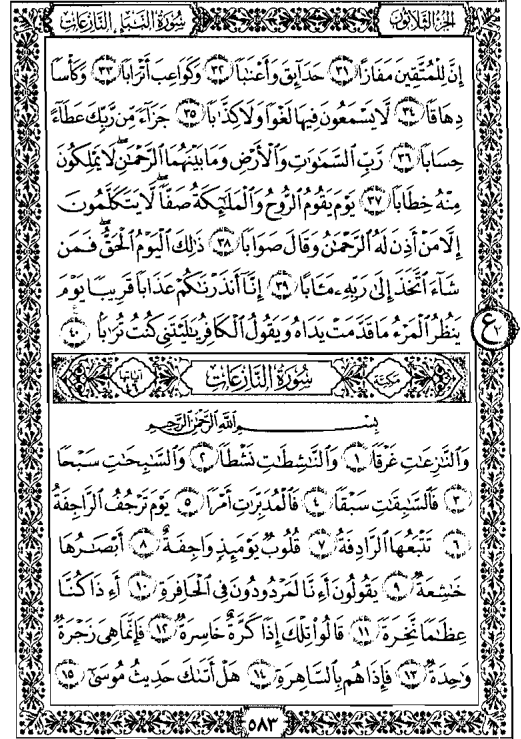 الجزء الثلاثون
سورة النبإ النازعات
إِنَّ لِلْمُتَّقِينَ مَفَازًا ٣١ حَدَآئِقَ وَأَعْنَٰبًا ٣٢ وَكَوَاعِبَ أَتْرَابًا ٣٣ وَكَأْسًا
دِهَاقًا ٣٤ لَّا يَسْمَعُونَ فِيهَا لَغْوًا وَلَا كِذَّٰبًا ٣٥ جَزَآءً مِّن رَّبِّكَ عَطَآءً
حِسَابًا ٣٦ رَّبِّ السَّمَٰوَٰتِ وَالْأَرْضِ وَمَا بَيْنَهُمَا الرَّحْمَٰنِ لَا يَمْلِكُونَ
مِنْهُ خِطَابًا ٣٧ يَوْمَ يَقُومُ الرُّوحُ وَالْمَلَٰٓئِكَةُ صَفًّا لَّا يَتَكَلَّمُونَ
إِلَّا مَنْ أَذِنَ لَهُ الرَّحْمَٰنُ وَقَالَ صَوَابًا ٣٨ ذَٰلِكَ الْيَوْمُ الْحَقُّ فَمَن
شَآءَ اتَّخَذَ إِلَىٰ رَبِّهِ مَـَٔابًا ٣٩ إِنَّآ أَنذَرْنَٰكُمْ عَذَابًا قَرِيبًا يَوْمَ
يَنظُرُ الْمَرْءُ مَا قَدَّمَتْ يَدَاهُ وَيَقُولُ الْكَافِرُ يَٰلَيْتَنِي كُنتُ تُرَٰبًا ٤٠
ع
مكية
سورة النازعات
آياتها ٤٦
بِسْمِ اللَّهِ الرَّحْمَٰنِ الرَّحِيمِ
وَالنَّازِعَاتِ غَرْقًا ١ وَالنَّاشِطَاتِ نَشْطًا ٢ وَالسَّابِحَاتِ سَبْحًا
٣ فَالسَّابِقَاتِ سَبْقًا ٤ فَالْمُدَبِّرَاتِ أَمْرًا ٥ يَوْمَ تَرْجُفُ الرَّاجِفَةُ
٦ تَتْبَعُهَا الرَّادِفَةُ ٧ قُلُوبٌ يَوْمَئِذٍ وَاجِفَةٌ ٨ أَبْصَٰرُهَا
خَٰشِعَةٌ ٩ يَقُولُونَ أَءِنَّا لَمَرْدُودُونَ فِي الْحَافِرَةِ ١٠ أَءِذَا كُنَّا
عِظَٰمًا نَّخِرَةً ١١ قَالُوا تِلْكَ إِذًا كَرَّةٌ خَاسِرَةٌ ١٢ فَإِنَّمَا هِيَ زَجْرَةٌ
وَٰحِدَةٌ ١٣ فَإِذَا هُم بِالسَّاهِرَةِ ١٤ هَلْ أَتَىٰكَ حَدِيثُ مُوسَىٰٓ ١٥
٥٨٣